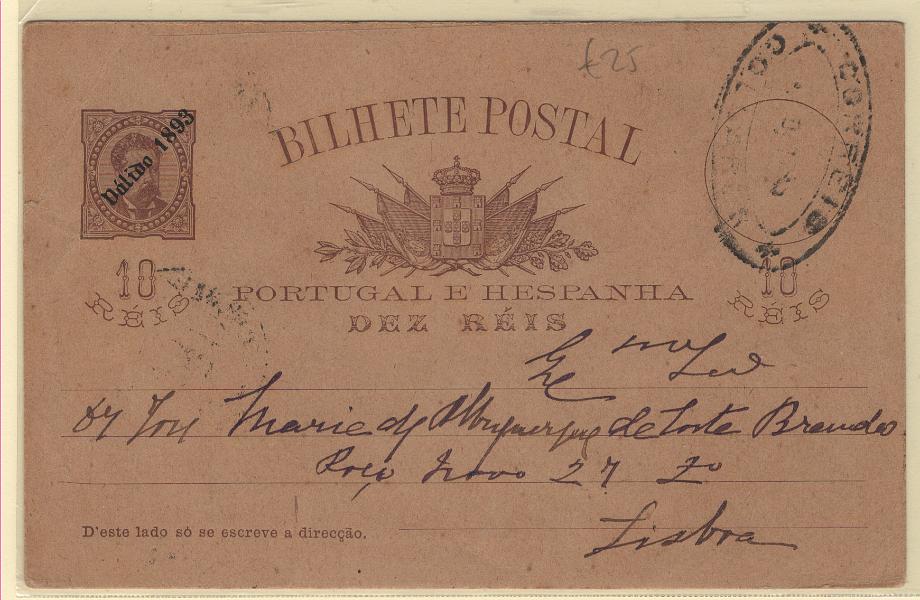 £25
BILHETE POSTAL
Diligo 1893
CORREIO
10
REIS
10
RÉIS
PORTUGAL E HESPANHA
DEZ RÉIS
Exmo Snr
Dr José Maria d'Albuquerque de Costa Brandão
Poço Novo 27 2o
Lisboa
D'este lado só se escreve a direcção.